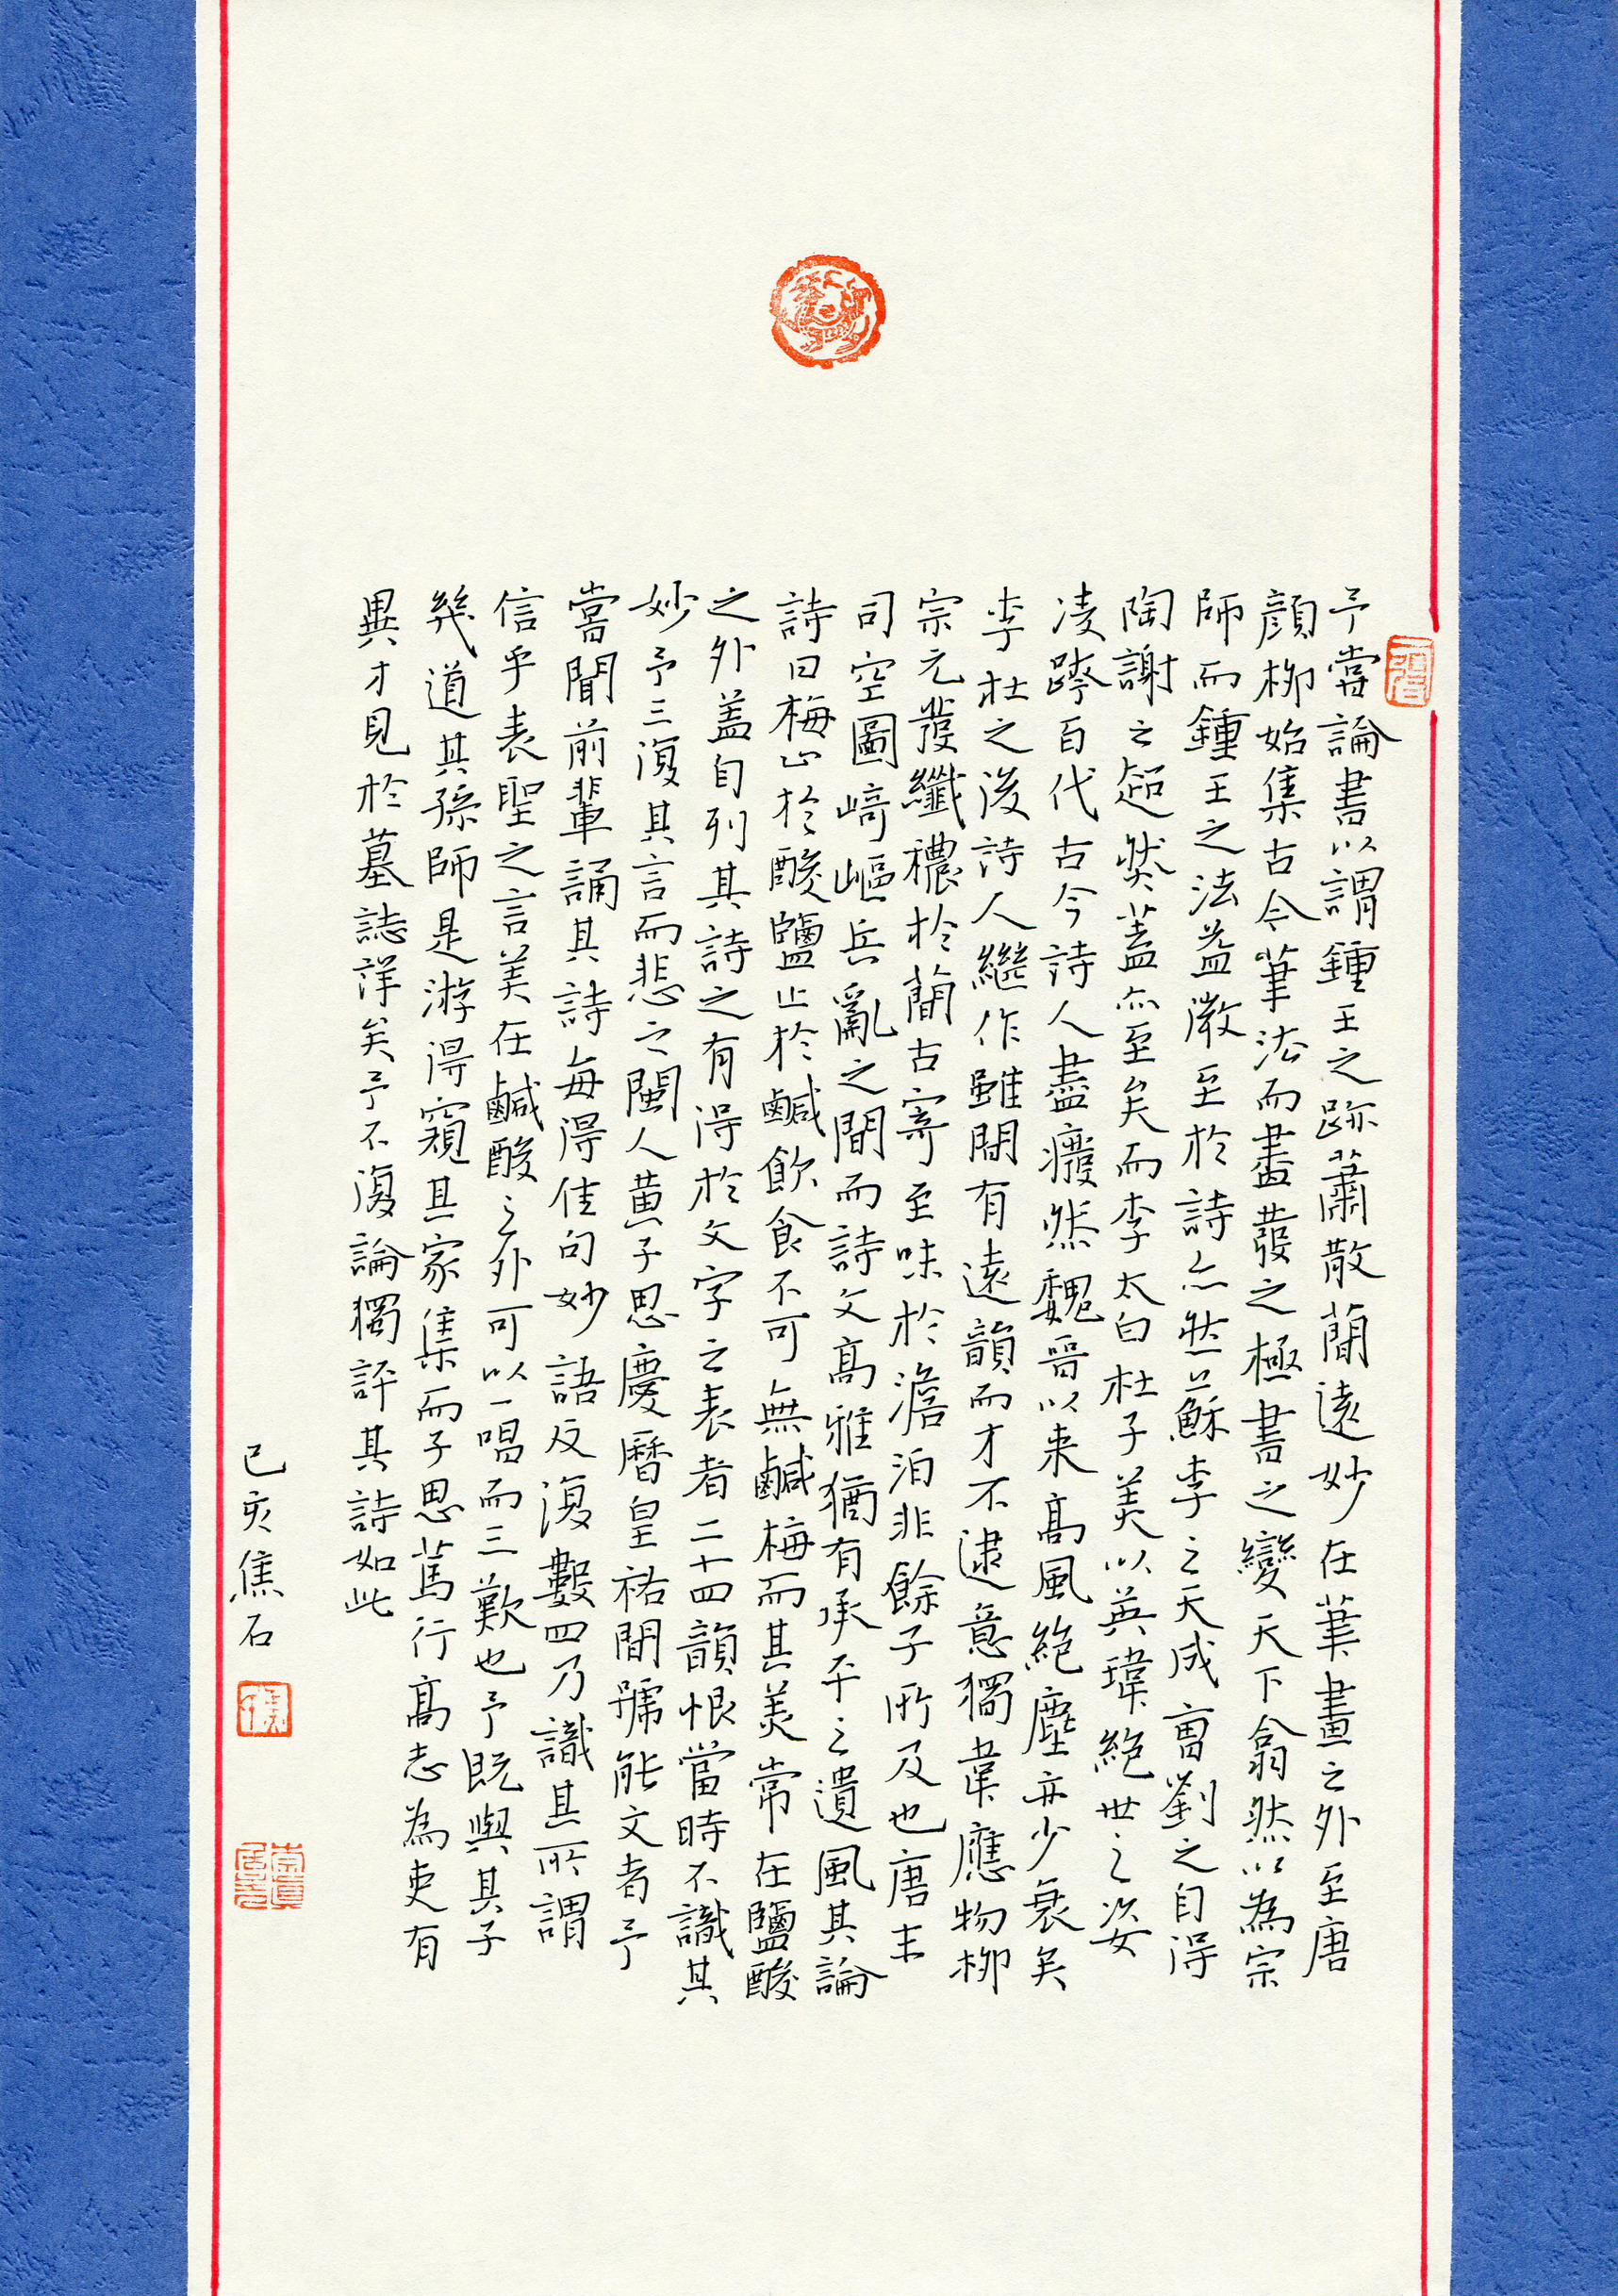 予嘗論書以謂鍾王之跡蕭散蕳遠妙在筆畫之外至唐
顏柳始集古今筆法而盡發之極書之變天下翕然以為宗
師而鍾王之法益微至於詩亦然蘇李之天成曹劉之自得
陶謝之超然蓋亦至矣而李太白杜子美以英瑋絕世之姿
凌跨百代古今詩人盡癈然魏晉以来高風絕塵亦少衰矣
李杜之後詩人繼作雖間有遠韻而才不逮意獨韋應物柳
宗元發纖穠於蕳古寄至味於澹泊非餘子所及也唐末
司空圖崎嶇兵亂之間而詩文高雅猶有承平之遺風其論
詩曰梅止於酸鹽止於鹹飲食不可無鹹梅而其美常在鹽酸
之外蓋自列其詩之有得於文字之表者二十四韻恨當時不識其
妙予三復其言而悲之閩人黄子思慶曆皇祐間號能文者予
嘗聞前輩誦其詩每得佳句妙語反復數四乃識其所謂
信乎表聖之言美在鹹酸之外可以一唱而三歎也予既與其子
幾道其孫師是游得窺其家集而子思篤行高志為吏有
異才見於墓誌詳矣予不復論獨評其詩如此
己亥焦石